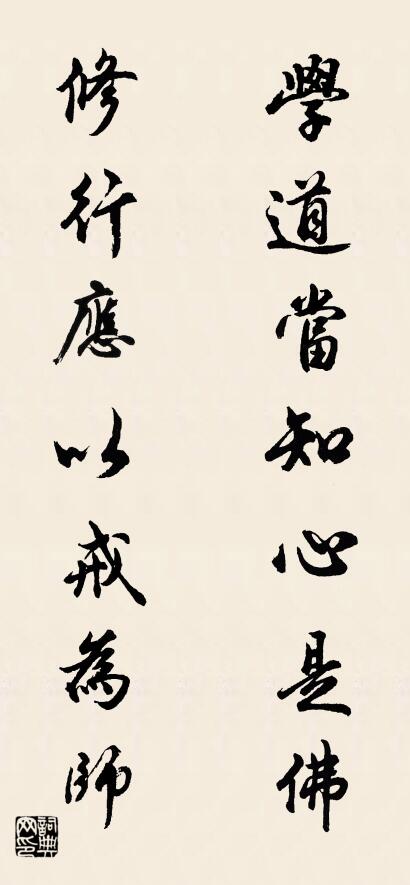 學道當知心是佛
修行應以戒為師
詞典网印